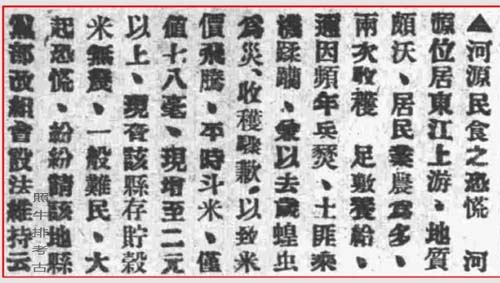 ▲河源民食之恐慌 河
源位居東江上游、地質
頗沃、居民業農爲多、
兩次收穫 足敷養給、
適因頻年兵燹、土匪乘
機蹂躪、兼以去歲蝗虫
爲災、收穫驟歉、以致米
價飛騰、平時斗米、僅
值十八毫、現增至二元
以上、現查該縣存貯穀
米無幾、一般難民、大
起恐慌、紛紛請該地縣
黨部改組會設法維持云
照牛排考古